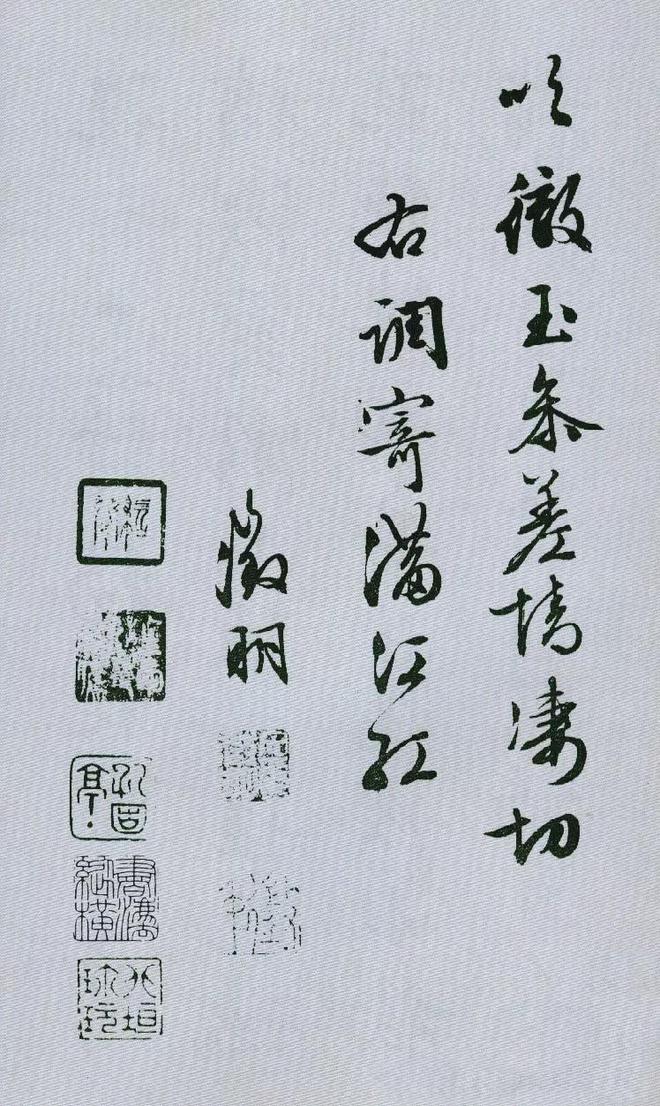 吹徹玉參差情凄切
右調寄滿江紅
徵明